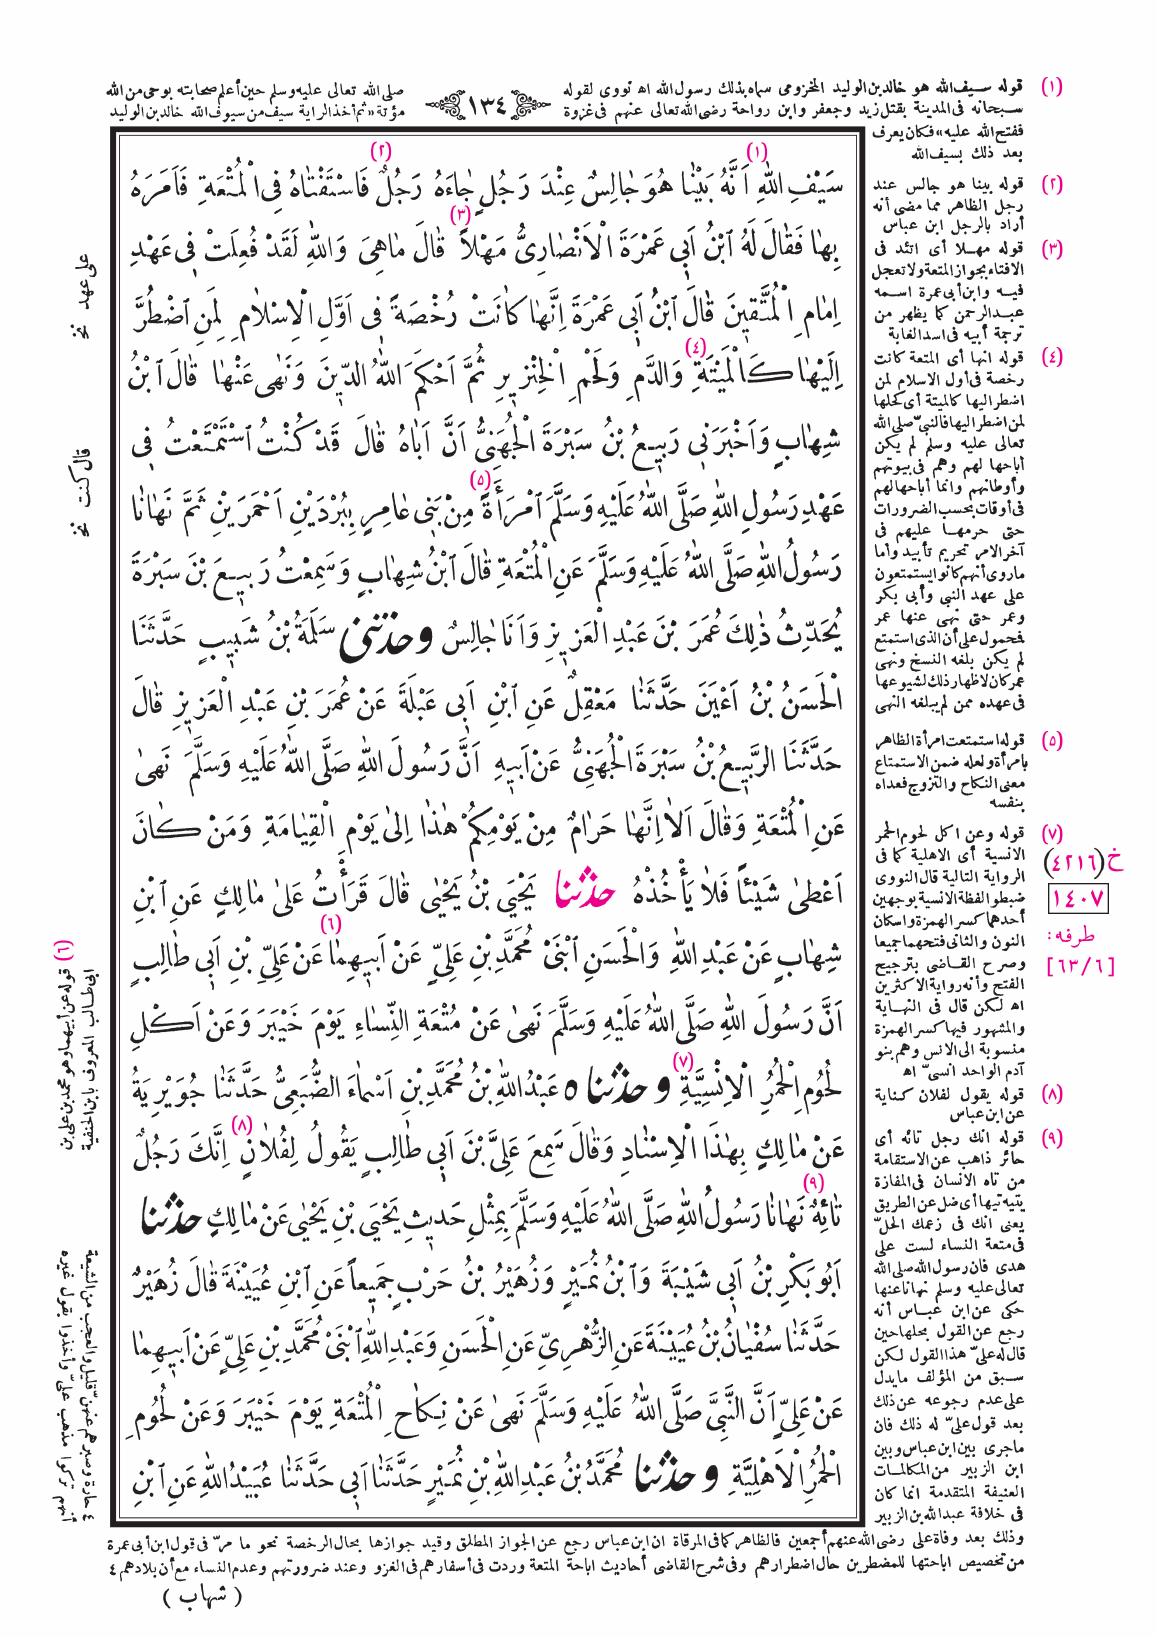 (١) قوله سيف الله هو خالد بن الوليد المخزومى سماه بذلك رسول الله اه نووى لقوله
سبحانه فى المدينة بقتل زيد وجعفر وابن رواحة رضى الله تعالى عنهم فى غزوة
﴿١٣٤﴾
صلى الله تعالى عليه وسلم حين أعلم صحابته بوحى من الله
مؤتة «ثم أخذ الراية سيف من سيوف الله خالد بن الوليد
ففتح الله عليه» فكان يعرف
بعد ذلك بسيف الله
سَيْفِ اللّٰهِ (١) اَنَّهُ بَيْنَا هُوَ جَالِسٌ عِنْدَ رَجُلٍ جَاءَهُ رَجُلٌ (٢) فَاسْتَفْتَاهُ فِى الْمُتْعَةِ فَاَمَرَهُ
بِهَا فَقَالَ لَهُ ابْنُ اَبِى عَمْرَةَ الْاَنْصَارِىُّ مَهْلاً (٣) قَالَ مَاهِىَ وَاللّٰهِ لَقَدْ فُعِلَتْ فِى عَهْدِ
اِمَامِ الْمُتَّقِينَ قَالَ ابْنُ اَبِى عَمْرَةَ اِنَّهَا كَانَتْ رُخْصَةً فِى اَوَّلِ الْاِسْلَامِ لِمَنِ اضْطُرَّ
اِلَيْهَا كَالْمَيْتَةِ (٤) وَالدَّمِ وَلَحْمِ الْخِنْزِيرِ ثُمَّ اَحْكَمَ اللّٰهُ الدِّينَ وَنَهٰى عَنْهَا قَالَ ابْنُ
شِهَابٍ وَاَخْبَرَنِى رَبِيعُ بْنُ سَبْرَةَ الْجُهَنِىُّ اَنَّ اَبَاهُ قَالَ قَدْ كُنْتُ اسْتَمْتَعْتُ فِى
عَهْدِ رَسُولِ اللّٰهِ صَلَّى اللّٰهُ عَلَيْهِ وَسَلَّمَ امْرَأَةً (٥) مِنْ بَنِى عَامِرٍ بِبُرْدَيْنِ اَحْمَرَيْنِ ثُمَّ نَهَانَا
رَسُولُ اللّٰهِ صَلَّى اللّٰهُ عَلَيْهِ وَسَلَّمَ عَنِ الْمُتْعَةِ قَالَ ابْنُ شِهَابٍ وَسَمِعْتُ رَبِيعَ بْنَ سَبْرَةَ
يُحَدِّثُ ذٰلِكَ عُمَرَ بْنَ عَبْدِ الْعَزِيزِ وَاَنَا جَالِسٌ وحدثنى سَلَمَةُ بْنُ شَبِيبٍ حَدَّثَنَا
الْحَسَنُ بْنُ اَعْيَنَ حَدَّثَنَا مَعْقِلٌ عَنِ ابْنِ اَبِى عَبْلَةَ عَنْ عُمَرَ بْنِ عَبْدِ الْعَزِيزِ قَالَ
حَدَّثَنَا الرَّبِيعُ بْنُ سَبْرَةَ الْجُهَنِىُّ عَنْ اَبِيهِ اَنَّ رَسُولَ اللّٰهِ صَلَّى اللّٰهُ عَلَيْهِ وَسَلَّمَ نَهٰى
عَنِ الْمُتْعَةِ وَقَالَ اَلاَ اِنَّهَا حَرَامٌ مِنْ يَوْمِكُمْ هٰذَا اِلٰى يَوْمِ الْقِيَامَةِ وَمَنْ كَانَ
اَعْطٰى شَيْئاً فَلاَ يَأْخُذْهُ حدثنا يَحْيَى بْنُ يَحْيٰى قَالَ قَرَأْتُ عَلٰى مَالِكٍ عَنِ ابْنِ
شِهَابٍ عَنْ عَبْدِ اللّٰهِ وَالْحَسَنِ ابْنَىْ مُحَمَّدِ بْنِ عَلِىٍّ عَنْ اَبِيهِمَا (٦) عَنْ عَلِىِّ بْنِ اَبِى طَالِبٍ
اَنَّ رَسُولَ اللّٰهِ صَلَّى اللّٰهُ عَلَيْهِ وَسَلَّمَ نَهٰى عَنْ مُتْعَةِ النِّسَاءِ يَوْمَ خَيْبَرَ وَعَنْ اَكْلِ
لُحُومِ الْحُمُرِ الْاِنْسِيَّةِ (٧) و حدثناه عَبْدُ اللّٰهِ بْنُ مُحَمَّدِ بْنِ اَسْمَاءَ الضُّبَعِىُّ حَدَّثَنَا جُوَيْرِيَةُ
عَنْ مَالِكٍ بِهٰذَا الْاِسْنَادِ وَقَالَ سَمِعَ عَلِىَّ بْنَ اَبِى طَالِبٍ يَقُولُ لِفُلاَنٍ (٨) اِنَّكَ رَجُلٌ
تَائِهٌ (٩) نَهَانَا رَسُولُ اللّٰهِ صَلَّى اللّٰهُ عَلَيْهِ وَسَلَّمَ بِمِثْلِ حَدِيثِ يَحْيَى بْنِ يَحْيٰى عَنْ مَالِكٍ حدثنا
اَبُو بَكْرِ بْنُ اَبِى شَيْبَةَ وَابْنُ نُمَيْرٍ وَزُهَيْرُ بْنُ حَرْبٍ جَمِيعاً عَنِ ابْنِ عُيَيْنَةَ قَالَ زُهَيْرٌ
حَدَّثَنَا سُفْيَانُ بْنُ عُيَيْنَةَ عَنِ الزُّهْرِىِّ عَنِ الْحَسَنِ وَعَبْدِ اللّٰهِ ابْنَىْ مُحَمَّدِ بْنِ عَلِىٍّ عَنْ اَبِيهِمَا
عَنْ عَلِىٍّ اَنَّ النَّبِىَّ صَلَّى اللّٰهُ عَلَيْهِ وَسَلَّمَ نَهٰى عَنْ نِكَاحِ الْمُتْعَةِ يَوْمَ خَيْبَرَ وَعَنْ لُحُومِ
الْحُمُرِ الْاَهْلِيَّةِ و حدثنا مُحَمَّدُ بْنُ عَبْدِ اللّٰهِ بْنِ نُمَيْرٍ حَدَّثَنَا اَبِى حَدَّثَنَا عُبَيْدُ اللّٰهِ عَنِ ابْنِ
(٢) قوله بينا هو جالس عند
رجل الظاهر مما مضى أنه
أراد بالرجل ابن عباس
(٣) قوله مهلا أى اتئد فى
الافتاء بجواز المتعة ولا تعجل
فيه وابن أبى عمرة اسمه
عبد الرحمن كما يظهر من
ترجمة أبيه فى اسد الغابة
(٤) قوله انها أى المتعة كانت
رخصة فى أول الاسلام لمن
اضطر اليها كالميتة أى كحلها
لمن اضطر اليها فالنبى صلى الله
تعالى عليه وسلم لم يكن
أباحها لهم وهم فى بيوتهم
وأوطانهم وانما أباحها لهم
فى أوقات بحسب الضرورات
حتى حرمها عليهم فى
آخر الامر تحريم تأبيد وأما
ما روى أنهم كانوا يستمتعون
على عهد النبى وأبى بكر
وعمر حتى نهى عنها عمر
فمحمول على أن الذى استمتع
لم يكن بلغه النسخ ونهى
عمر كان لاظهار ذلك لشيوعها
فى عهده ممن لم يبلغه النهى
(٥) قوله استمتعت امرأة الظاهر
بامرأة ولعله ضمن الاستمتاع
معنى النكاح والتزوج فعداه
بنفسه
(٧) قوله وعن اكل لحوم الحمر
الانسية أى الاهلية كما فى
الرواية التالية قال النووى
ضبطوا لفظة الانسية بوجهين
أحدهما كسر الهمزة واسكان
النون والثانى فتحهما جميعا
وصرح القاضى بترجيح
الفتح وأنه رواية الاكثرين
اه لكن قال فى النهاية
والمشهور فيها كسر الهمزة
منسوبة الى الانس وهم بنو
آدم الواحد انسىّ اه
(٨) قوله يقول لفلان كناية
عن ابن عباس
(٩) قوله انك رجل تائه أى
حائر ذاهب عن الاستقامة
من تاه الانسان فى المفازة
يتيه تيها أى ضل عن الطريق
يعنى انك فى زعمك الحلّ
فى متعة النساء لست على
هدى فان رسول الله صلى الله
تعالى عليه وسلم نهانا عنها
حكى عن ابن عباس أنه
رجع عن القول بحلها حين
قال له علىّ هذا القول لكن
سبق من المؤلف ما يدل
على عدم رجوعه عن ذلك
بعد قول علىّ له ذلك فان
ما جرى بين ابن عباس وبين
ابن الزبير من المكالمات
العنيفة المتقدمة انما كان
فى خلافة عبد الله بن الزبير
وذلك بعد وفاة على رضى الله عنهم أجمعين فالظاهر كما فى المرقاة ان ابن عباس رجع عن الجواز المطلق وقيد جوازها بحال الرخصة نحو ما مرّ فى قول ابن أبى عمرة
من تخصيص اباحتها للمضطرين حال اضطرارهم وفى شرح القاضى أحاديث اباحة المتعة وردت فى أسفارهم فى الغزو وعند ضرورتهم وعدم النساء مع أن بلادهم ٤
( شهاب )
خ (٤٢١٦)
١٤٠٧
طرفه:
[٦٣/٦]
على عهد نخ
قال كنت نخ
(٦) قوله عن أبيهما وهو محمد بن على بن
ابى طالب المعروف بابن الحنفية
٤ حارة وصبرهم عنهنّ قليل والعجب من الشيعة
أنهم تركوا مذهب علىّ وأخذوا بقول غيره